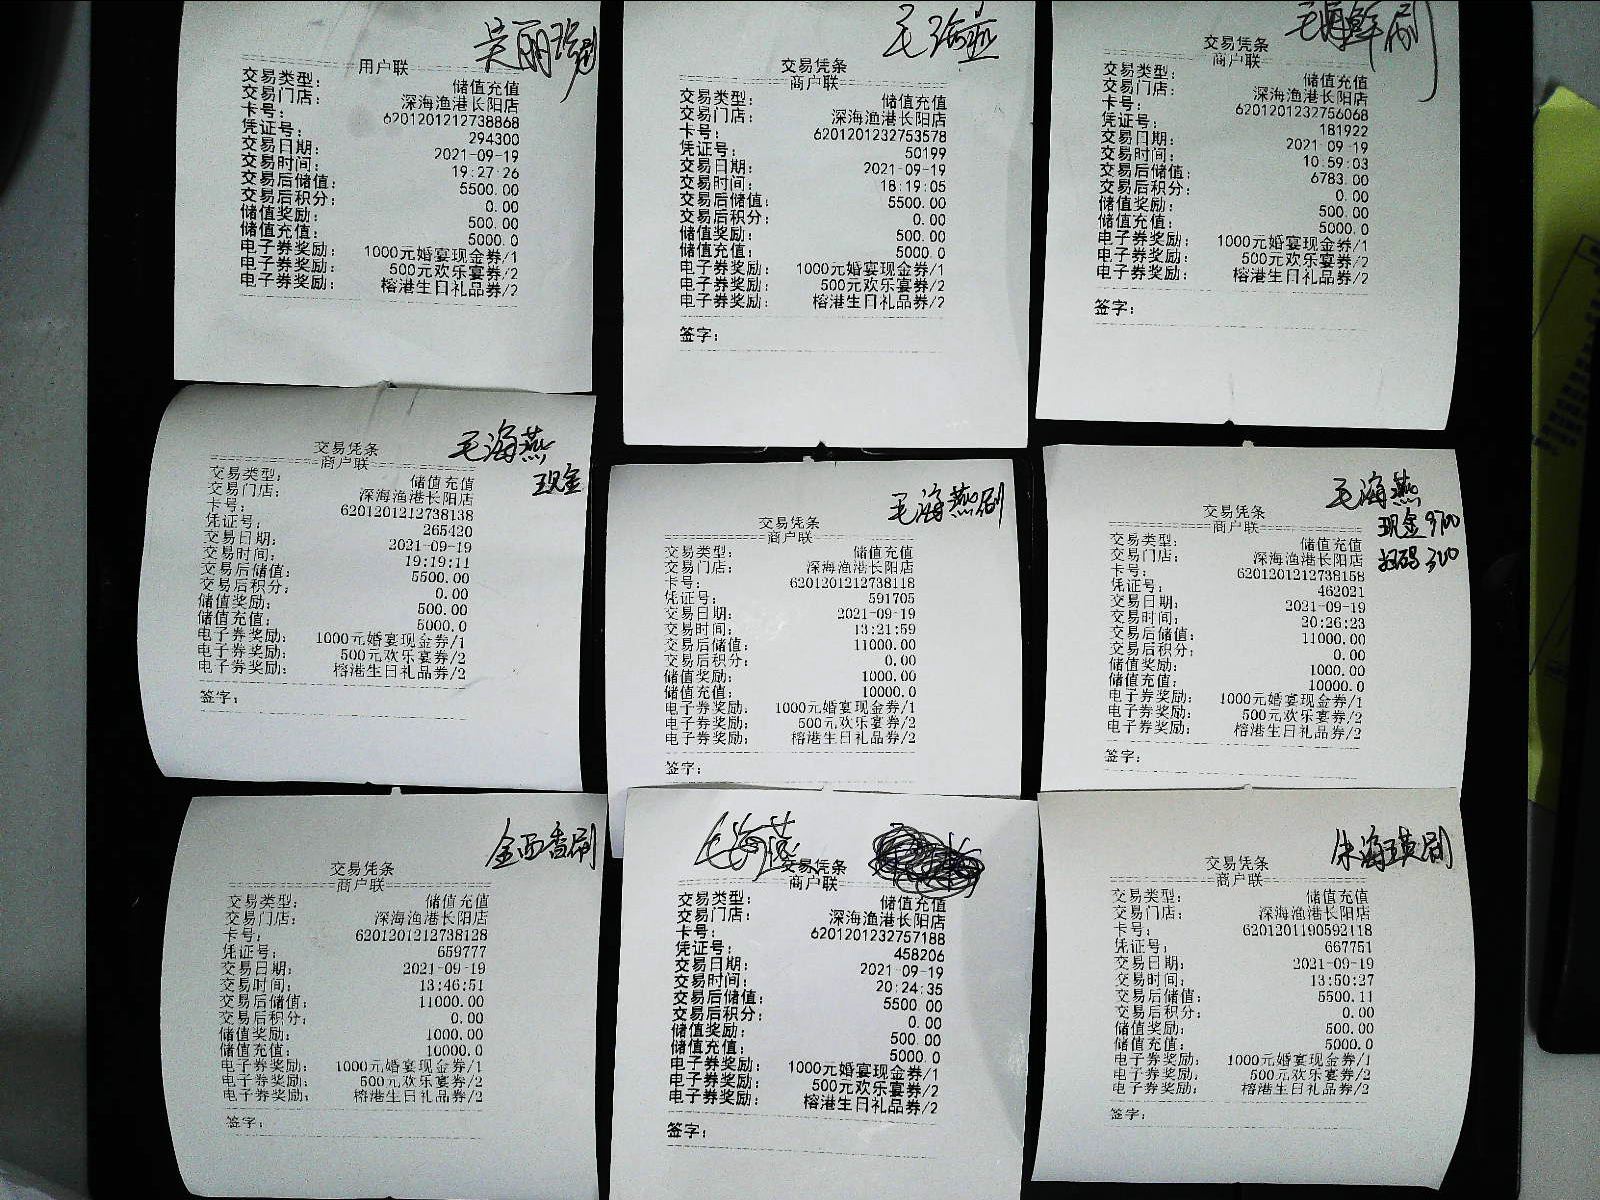 吴丽琼刷
用户联
交易类型： 储值充值
交易门店： 深海渔港长阳店
卡号： 6201201212738868
凭证号： 294300
交易日期： 2021-09-19
交易时间： 19:27:26
交易后储值： 5500.00
交易后积分： 0.00
储值奖励： 500.00
储值充值： 5000.0
电子券奖励： 1000元婚宴现金券/1
电子券奖励： 500元欢乐宴券/2
电子券奖励： 榕港生日礼品券/2
毛海燕
交易凭条
商户联
交易类型： 储值充值
交易门店： 深海渔港长阳店
卡号： 6201201232753578
凭证号： 50199
交易日期： 2021-09-19
交易时间： 18:19:05
交易后储值： 5500.00
交易后积分： 0.00
储值奖励： 500.00
储值充值： 5000.0
电子券奖励： 1000元婚宴现金券/1
电子券奖励： 500元欢乐宴券/2
电子券奖励： 榕港生日礼品券/2
签字：
毛海燕刷
交易凭条
商户联
交易类型： 储值充值
交易门店： 深海渔港长阳店
卡号： 6201201232756068
凭证号： 181922
交易日期： 2021-09-19
交易时间： 10:59:03
交易后储值： 6783.00
交易后积分： 0.00
储值奖励： 500.00
储值充值： 5000.0
电子券奖励： 1000元婚宴现金券/1
电子券奖励： 500元欢乐宴券/2
电子券奖励： 榕港生日礼品券/2
签字：
毛海燕
现金
交易凭条
商户联
交易类型： 储值充值
交易门店： 深海渔港长阳店
卡号： 6201201212738138
凭证号： 265420
交易日期： 2021-09-19
交易时间： 19:19:11
交易后储值： 5500.00
交易后积分： 0.00
储值奖励： 500.00
储值充值： 5000.0
电子券奖励： 1000元婚宴现金券/1
电子券奖励： 500元欢乐宴券/2
电子券奖励： 榕港生日礼品券/2
签字：
毛海燕刷
交易凭条
商户联
交易类型： 储值充值
交易门店： 深海渔港长阳店
卡号： 6201201212738118
凭证号： 591705
交易日期： 2021-09-19
交易时间： 13:21:59
交易后储值： 11000.00
交易后积分： 0.00
储值奖励： 1000.00
储值充值： 10000.0
电子券奖励： 1000元婚宴现金券/1
电子券奖励： 500元欢乐宴券/2
电子券奖励： 榕港生日礼品券/2
签字：
毛海燕
现金9700
扫码300
交易凭条
商户联
交易类型： 储值充值
交易门店： 深海渔港长阳店
卡号： 6201201212738158
凭证号： 462021
交易日期： 2021-09-19
交易时间： 20:26:23
交易后储值： 11000.00
交易后积分： 0.00
储值奖励： 1000.00
储值充值： 10000.0
电子券奖励： 1000元婚宴现金券/1
电子券奖励： 500元欢乐宴券/2
电子券奖励： 榕港生日礼品券/2
签字：
金西香刷
交易凭条
商户联
交易类型： 储值充值
交易门店： 深海渔港长阳店
卡号： 6201201212738128
凭证号： 659777
交易日期： 2021-09-19
交易时间： 13:46:51
交易后储值： 11000.00
交易后积分： 0.00
储值奖励： 1000.00
储值充值： 10000.0
电子券奖励： 1000元婚宴现金券/1
电子券奖励： 500元欢乐宴券/2
电子券奖励： 榕港生日礼品券/2
签字：
毛海燕
交易凭条
商户联
交易类型： 储值充值
交易门店： 深海渔港长阳店
卡号： 6201201232757188
凭证号： 458206
交易日期： 2021-09-19
交易时间： 20:24:35
交易后储值： 5500.00
交易后积分： 0.00
储值奖励： 500.00
储值充值： 5000.0
电子券奖励： 1000元婚宴现金券/1
电子券奖励： 500元欢乐宴券/2
电子券奖励： 榕港生日礼品券/2
签字：
朱海英刷
交易凭条
商户联
交易类型： 储值充值
交易门店： 深海渔港长阳店
卡号： 6201201190592118
凭证号： 667751
交易日期： 2021-09-19
交易时间： 13:50:27
交易后储值： 5500.11
交易后积分： 0.00
储值奖励： 500.00
储值充值： 5000.0
电子券奖励： 1000元婚宴现金券/1
电子券奖励： 500元欢乐宴券/2
电子券奖励： 榕港生日礼品券/2
签字：